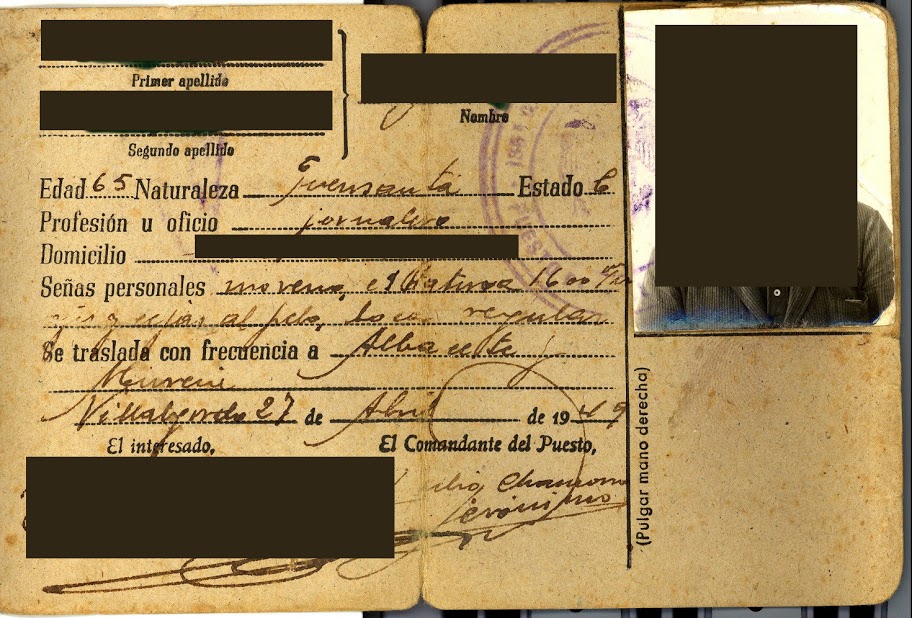 Primer apellido
Nombre
Segundo apellido
Edad 65 Naturaleza Fuensanta Estado C
Profesión u oficio jornalero
Domicilio
Señas personales moreno, estatura 1600
y cejas al pelo, boca regular
Se traslada con frecuencia a Albacete y
Murcia
Villalgordo 27 de Abril de 1949
El interesado, El Comandante del Puesto,
Chamorro
Jerónimo
(Pulgar mano derecha)